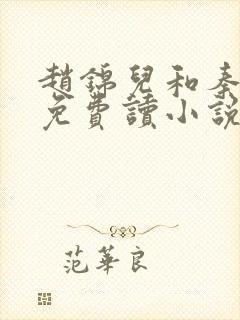 趙錦兒和秦
免費讀小說
范華良